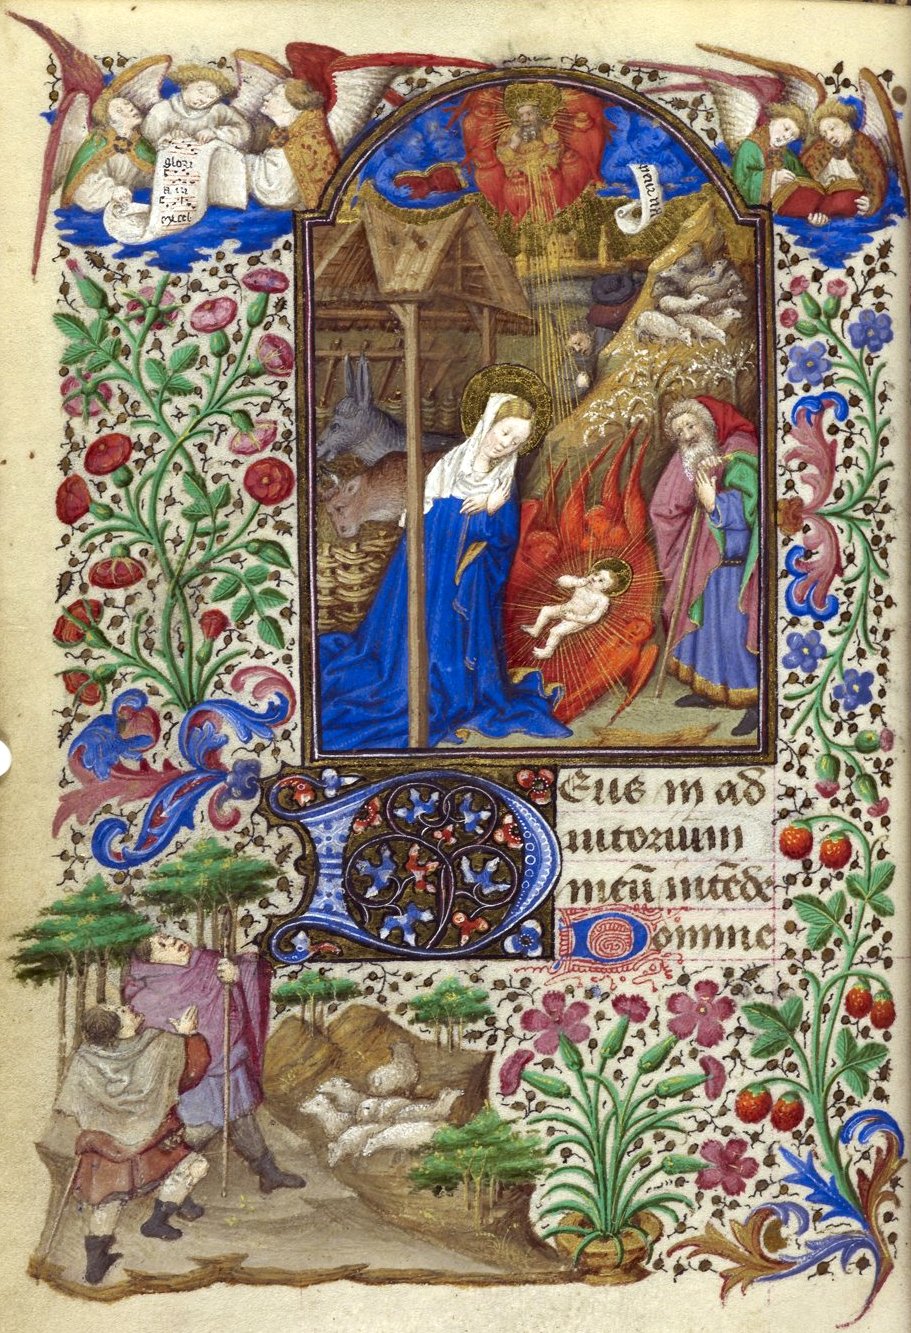 glori
a in
excel
DEus in ad
iutorium
meū intēde
Domine